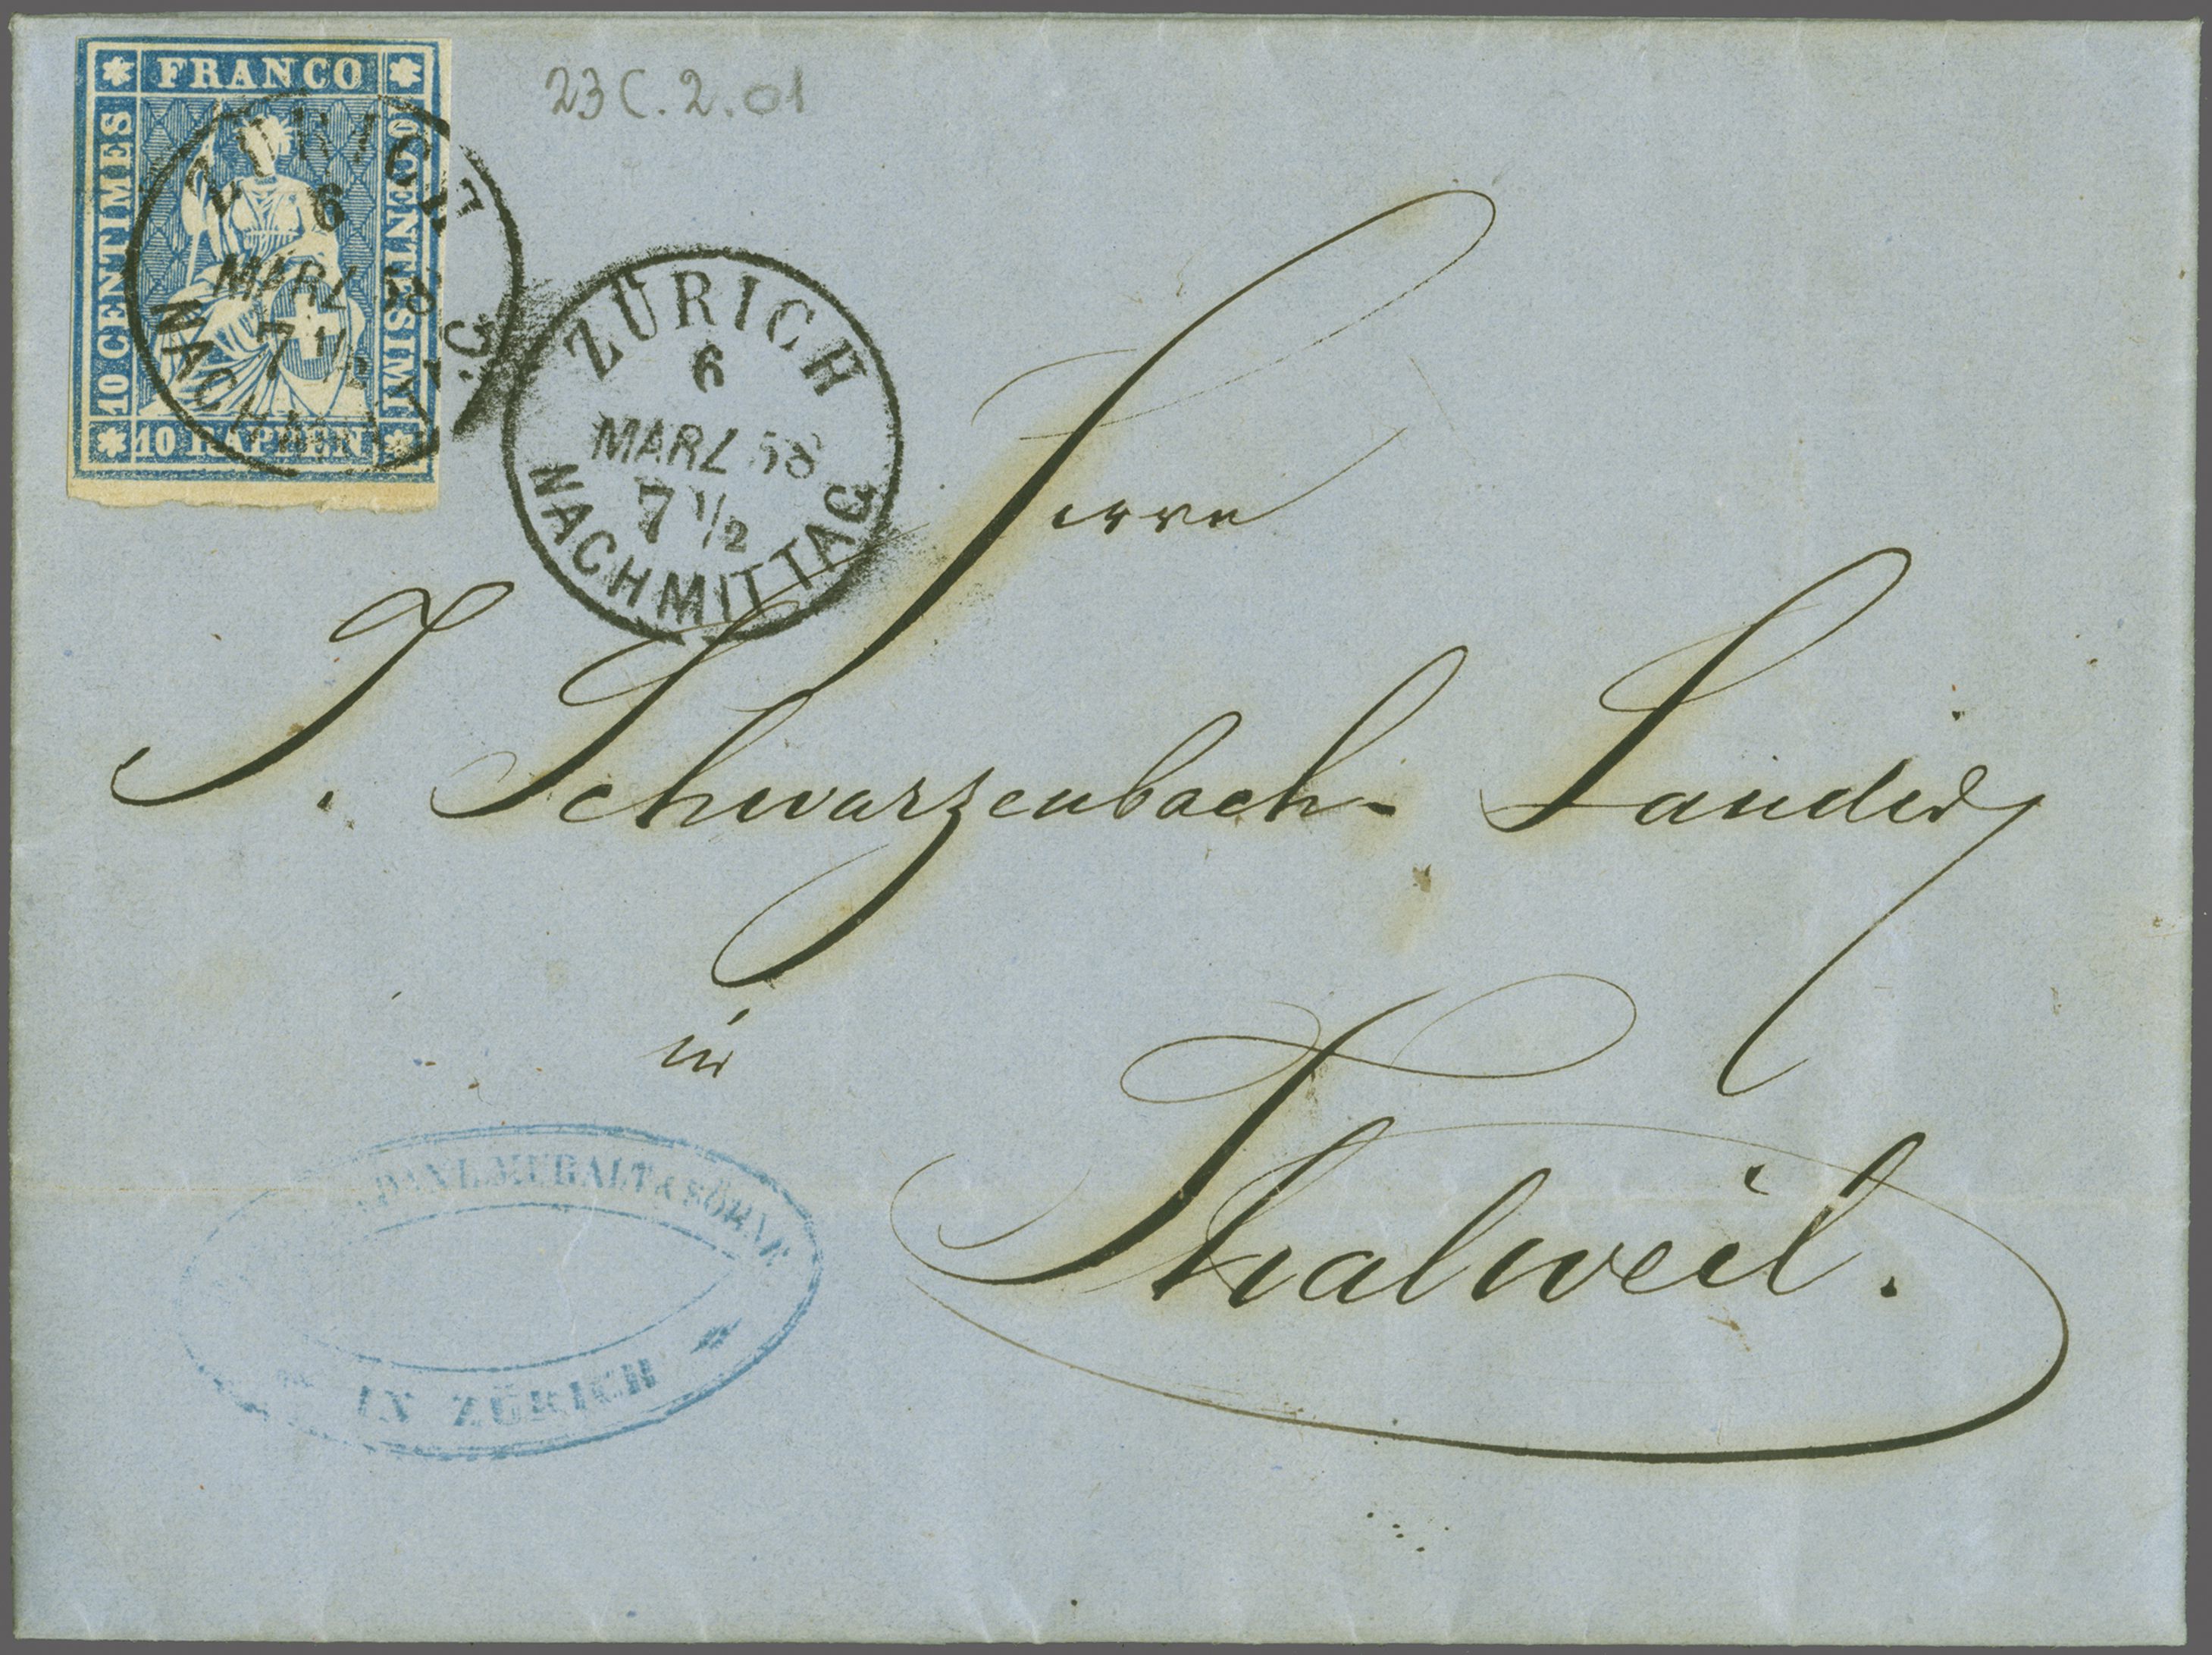 FRANCO
10 CENTIMES
10 CENTESIMI
10 RAPPEN
ZÜRICH
6
MARZ 58
7 1/2
NACHMITTAG
23 C. 2. 01
ZÜRICH
6
MARZ 58
7 1/2
NACHMITTAG
Herrn
J. Schwarzenbach-Landis
in
Thalweil.
DANL. MURALT & SÖHNE
IN ZÜRICH